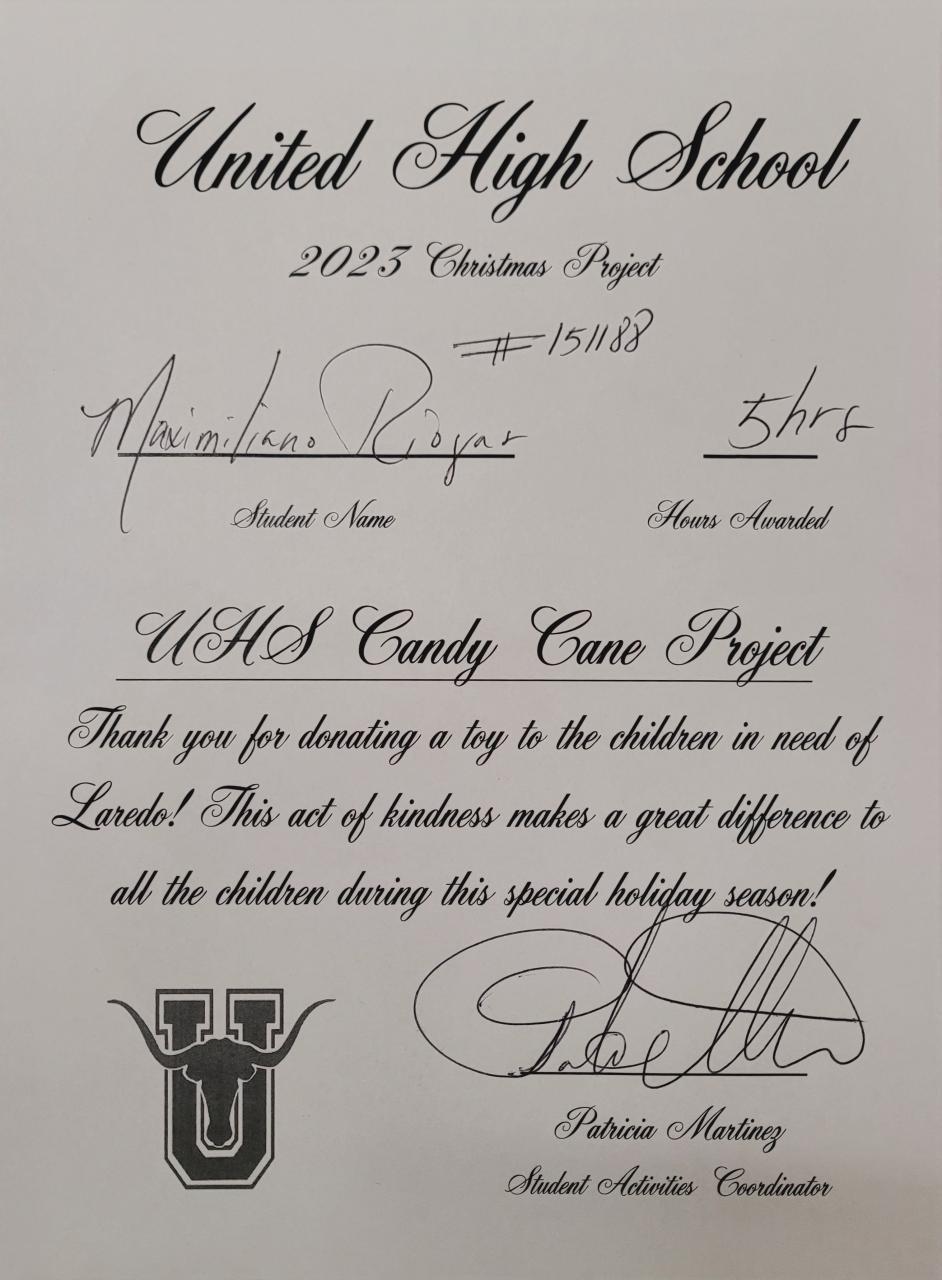 United High School
2023 Christmas Project
#151188
Maximiliano
5hrs
Student Name
Hours Awarded
UHS Candy Cane Project
Thank you for donating a toy to the children in need of
Laredo! This act of kindness makes a great difference to
all the children during this special holiday season!
U
Patricia Martinez
Student Activities Coordinator